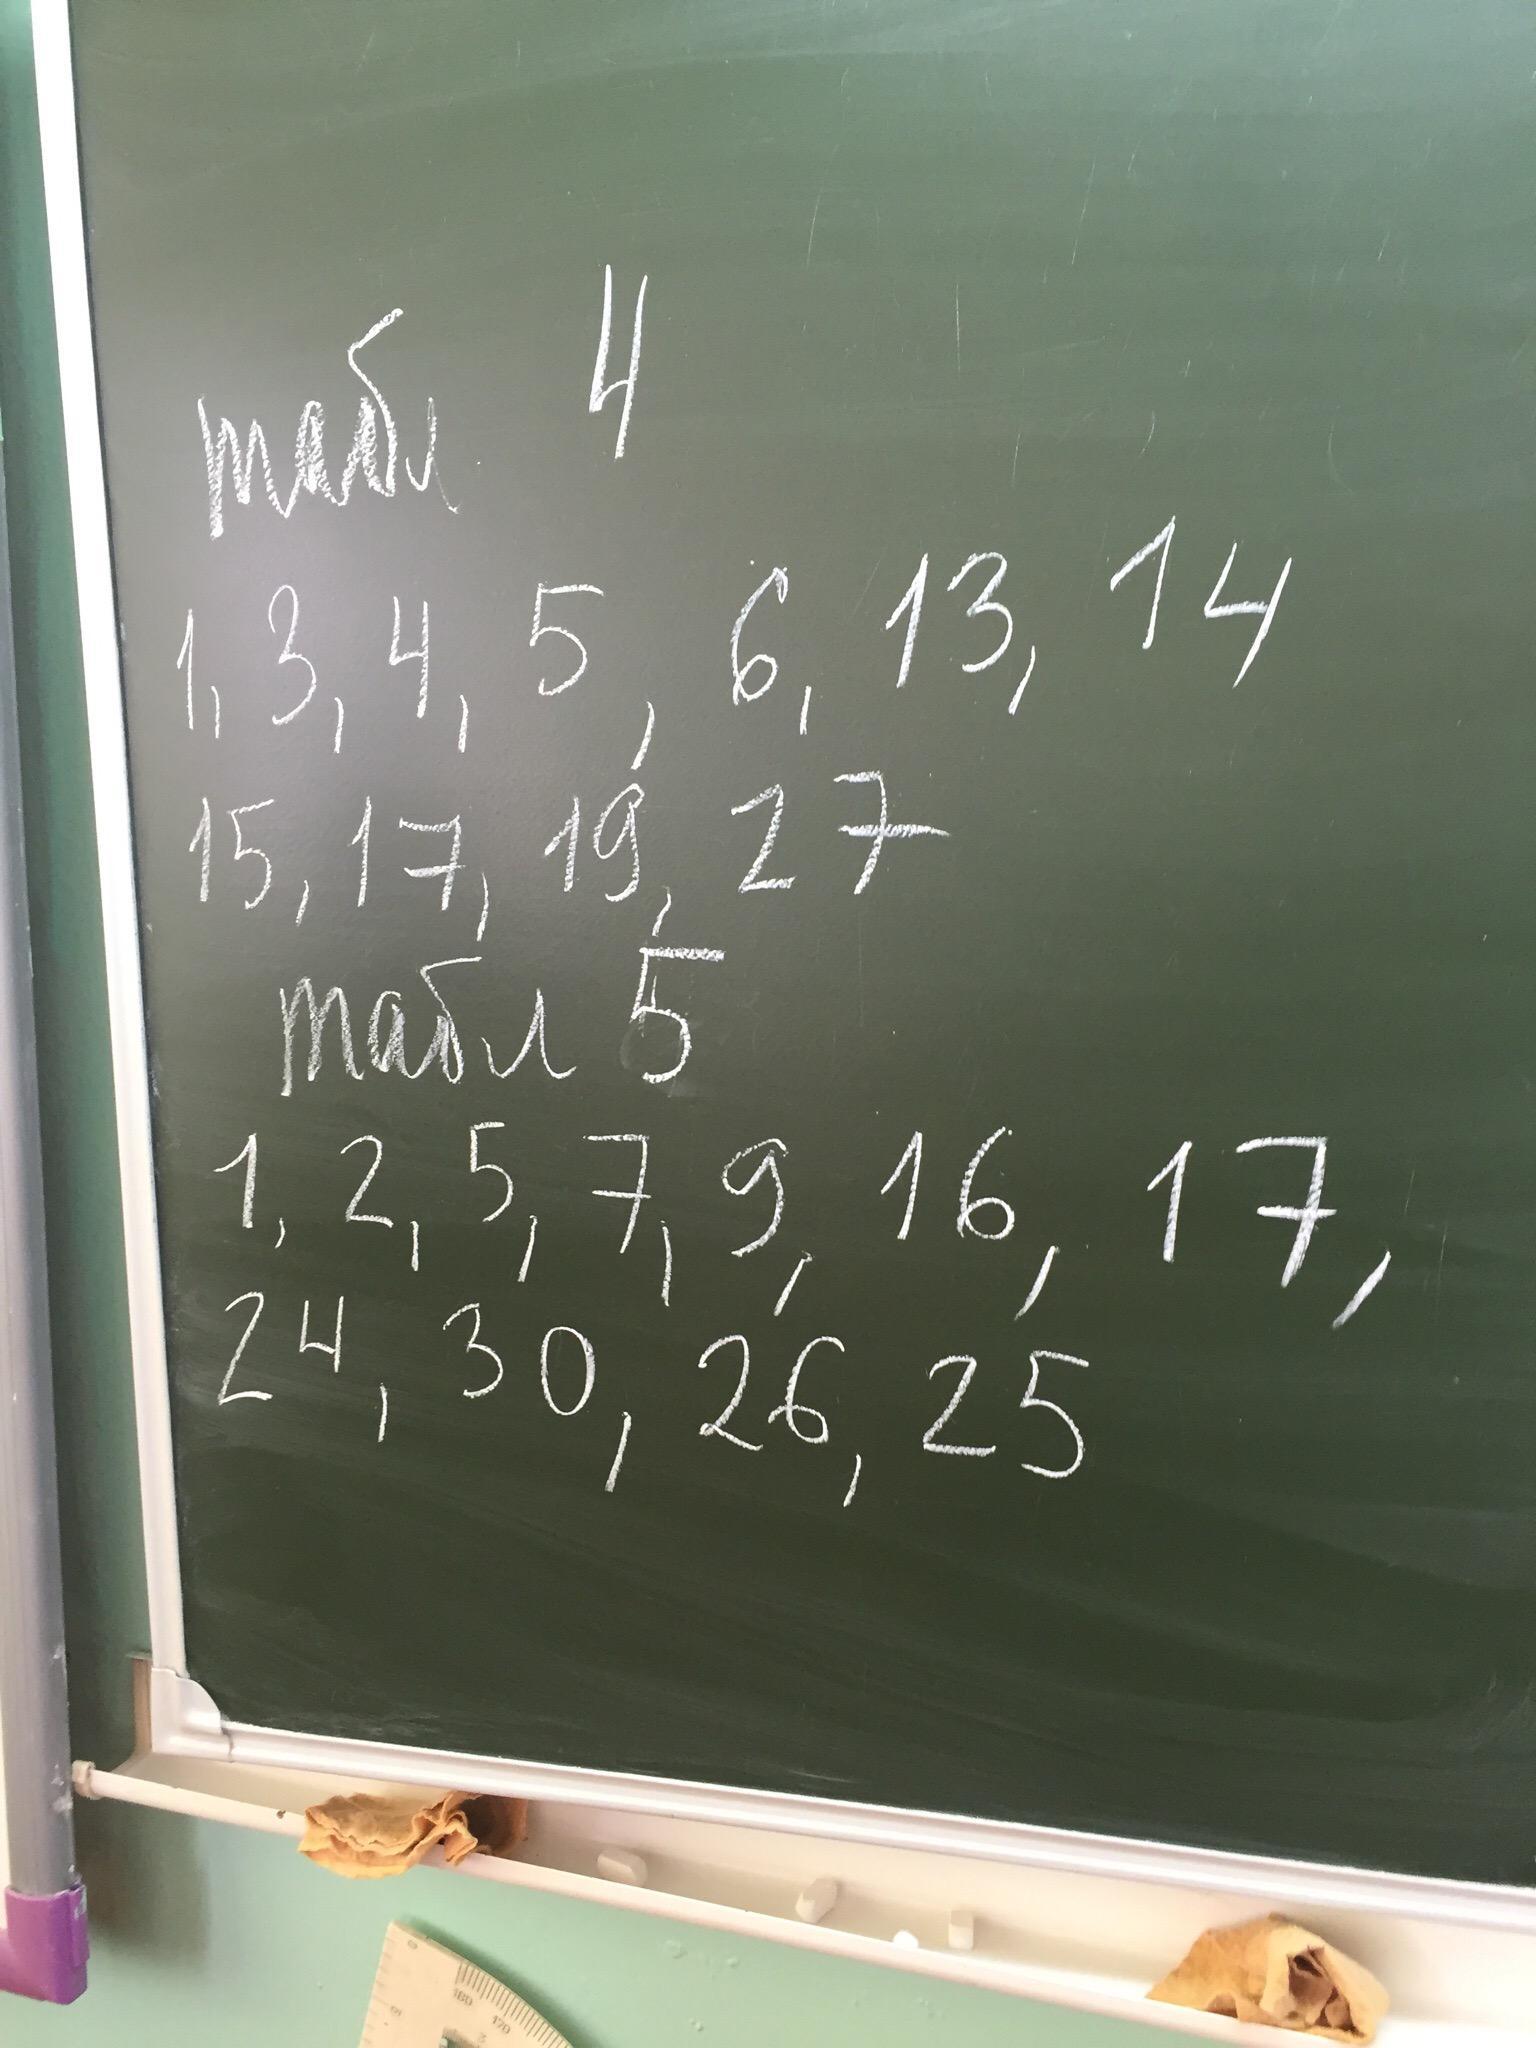 табл 4
1, 3, 4, 5, 6, 13, 14
15, 17, 19, 27
табл 5
1, 2, 5, 7, 9, 16, 17,
24, 30, 26, 25
0
180
170